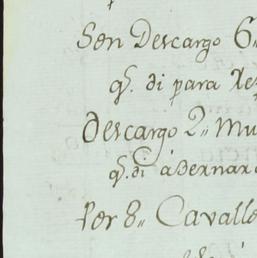 Son Descargo 6
q.ͤ di para
Descargo 2,, Mu
q.ͤ di à Bernar
Por 8,, Cavall